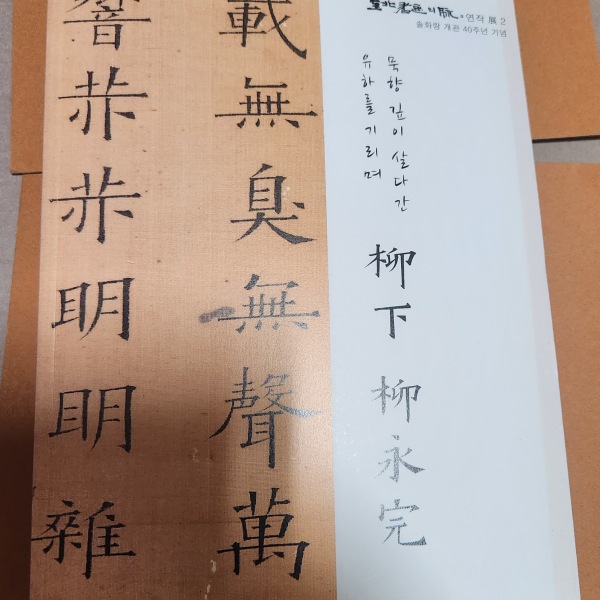 의 脈 · 연작 展 2
솔화랑 개관 40주년 기념
묵향 깊이 살다간
유하를 기리며
柳下 柳永完
載無臭無聲萬
響 明明雜